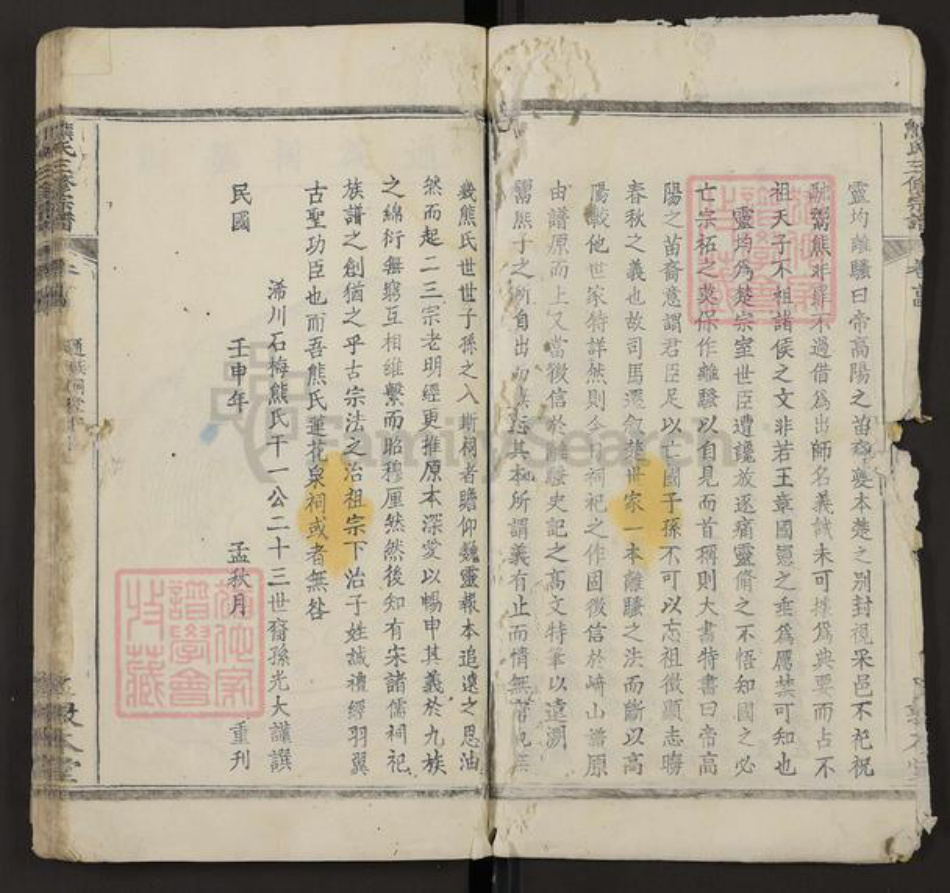 靈均離騷曰帝高陽之苗裔夔本楚之別封視采邑不祀祝
融鬻熊非罪不過借為出師名義誠未可據為典要而占不
祖天子不祖諸侯之文非若王章國憲之垂為厲禁可知也
靈均為楚宗室世臣遭讒放逐痛靈脩之不悟知國之必
亡宗祏之莫保作離騷以自見而首稱則大書特書曰帝高
陽之苗裔意謂君臣足以亡國子孫不可以忘祖微顯志晦
春秋之義也故司馬遷敘楚世家一本離騷之法而斷以高
陽較他世家特詳然則今日祠祀之作固徵信於崎山譜原
由譜原而上又當徵信於離騷史記之高文特筆以遠溯
鬻熊子之所自出勿忘其本所謂義有止而情無窮也
幾熊氏世世子孫之入斯祠者瞻仰巍靈報本追遠之思油
然而起二三宗老明經更推原本深愛以暢申其義於九族
之綿衍無窮互相維繫而昭穆厘然然後知有宋諸儒祠祀
族譜之創猶之乎古宗法之治祖宗下治子姓誠禮經羽翼
古聖功臣也而吾熊氏蓮花泉祠或者無咎
浠川石梅熊氏千一公二十三世裔孫光大謹譔
民國 壬申年 孟秋月 重刊
熊氏三修宗譜
敦本堂
FamilySearch